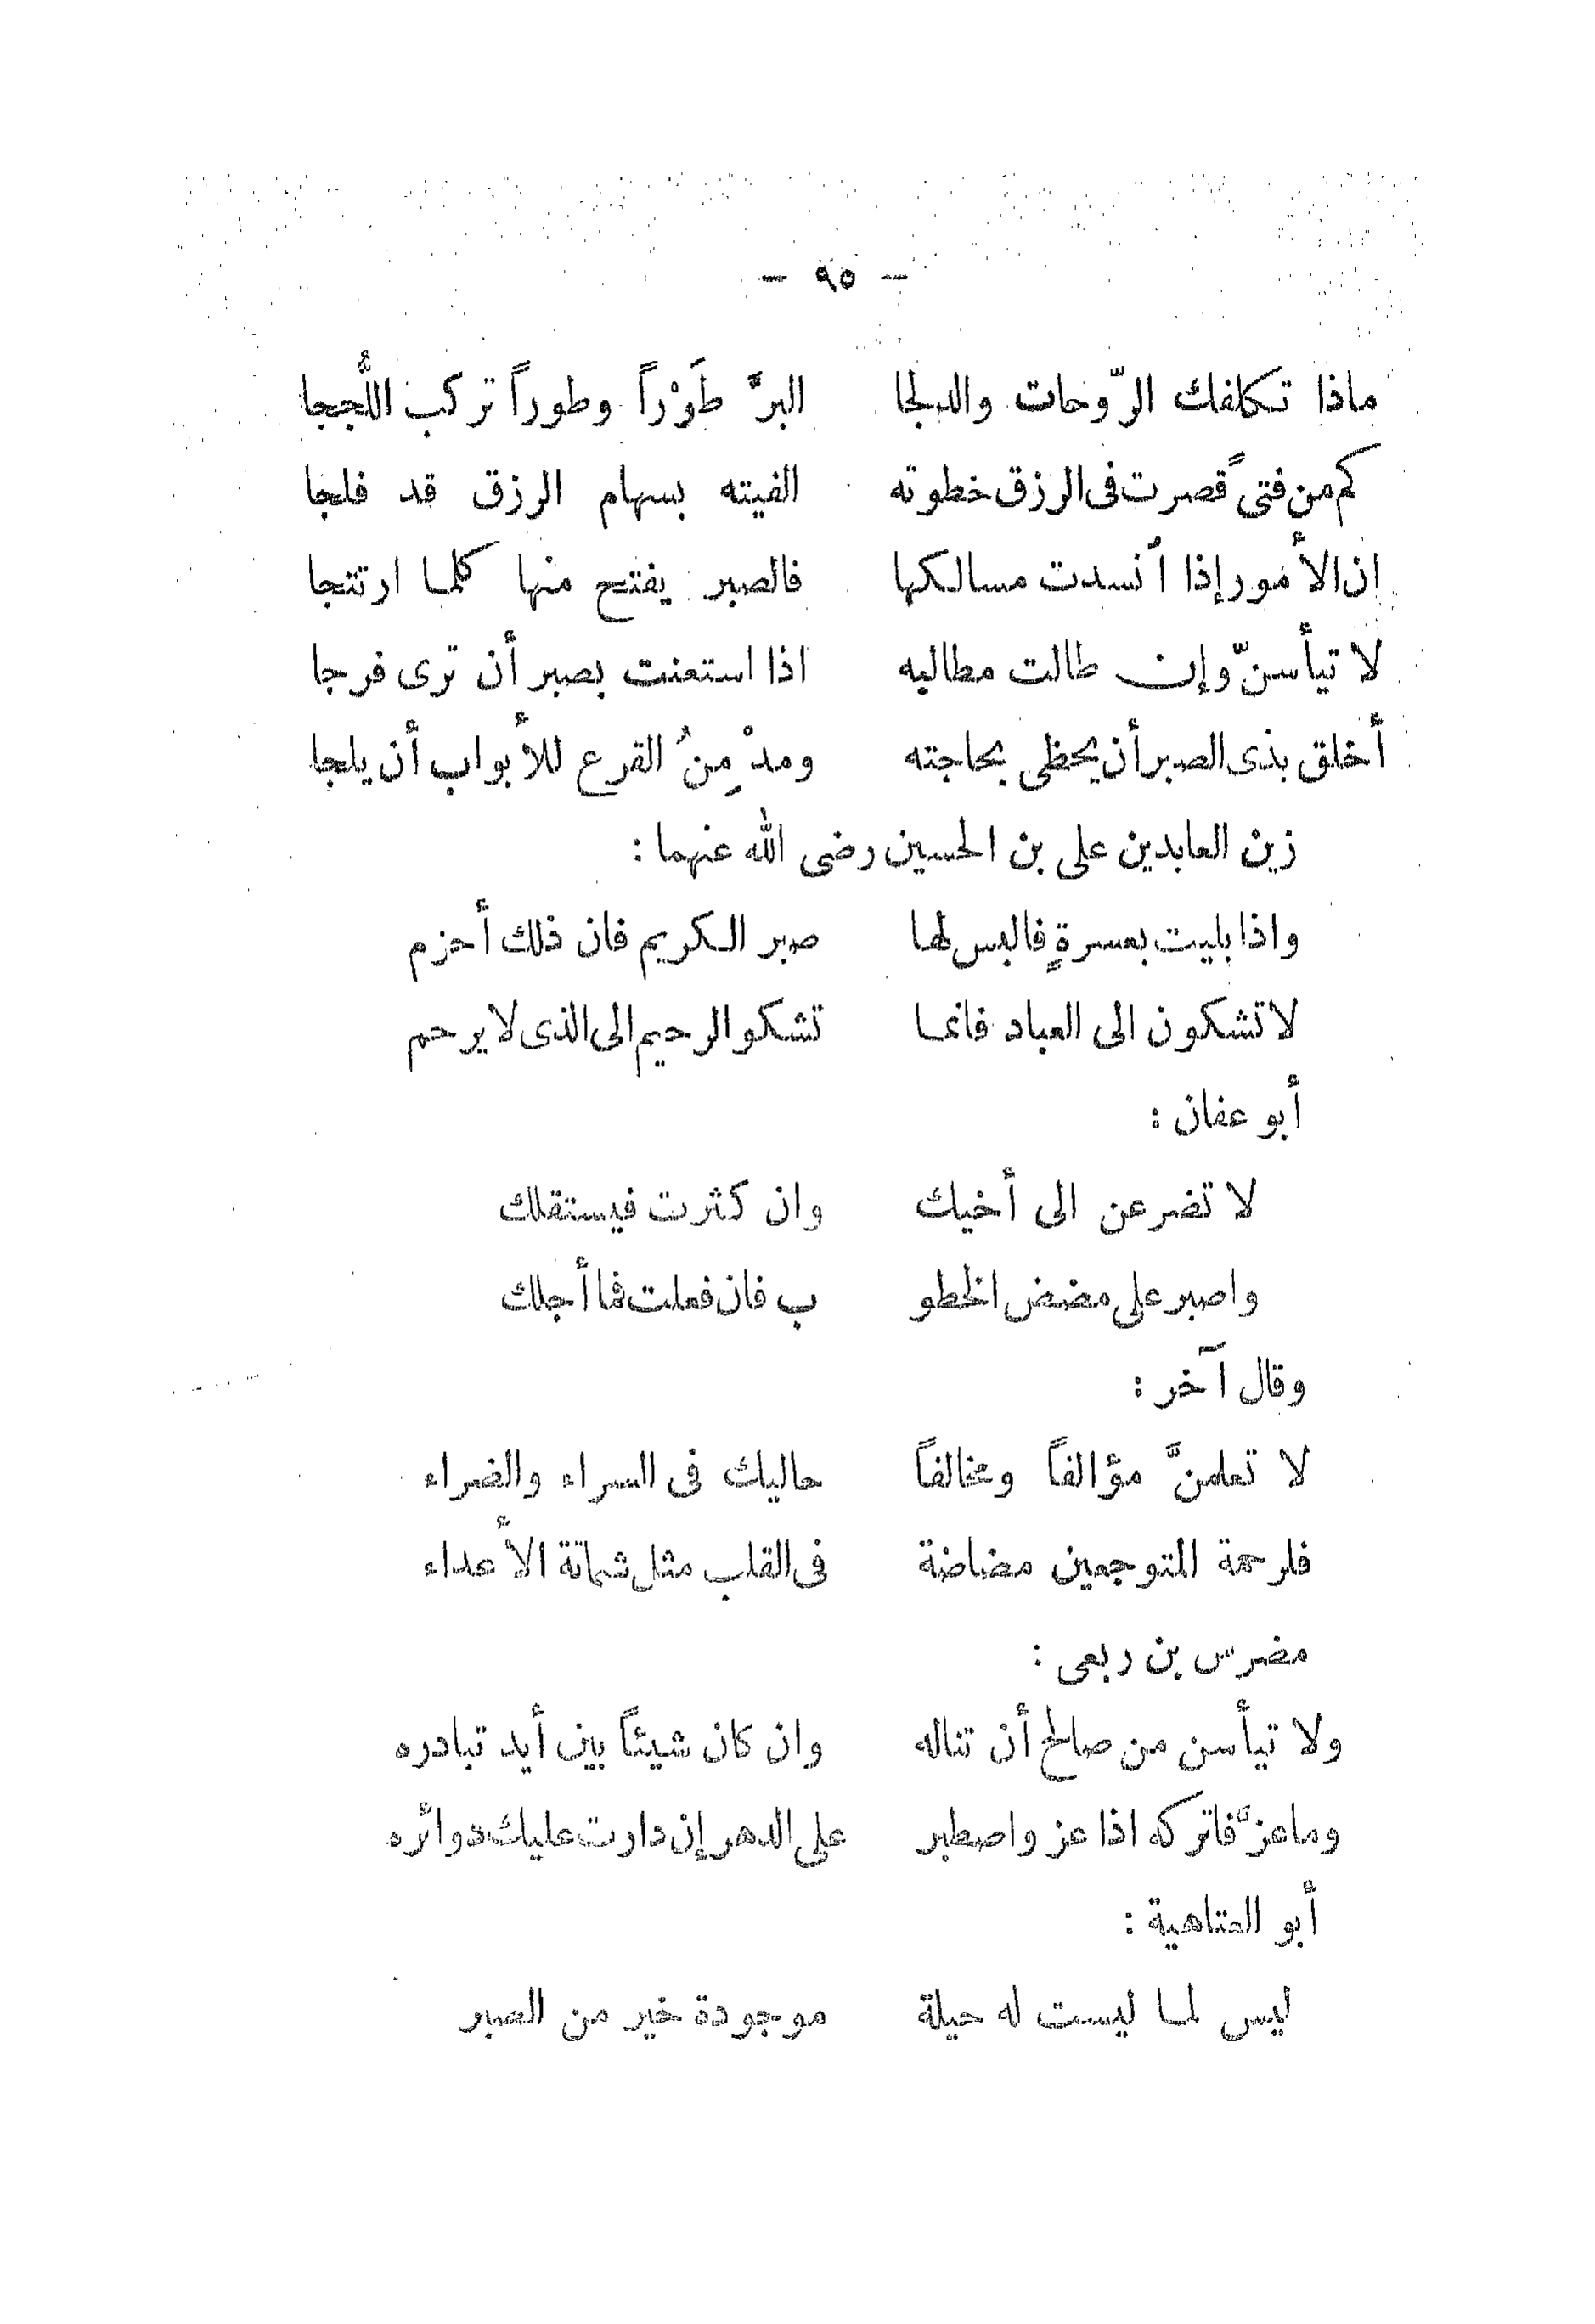 — ٩٥ —
ماذا تكلفك الرّوحات والدلجا البرَّ طَوْراً وطوراً تركب اللُّججا
كم من فتىً قصرت فى الرزق خطوته الفيته بسهام الرزق قد فلجا
ان الأمور إذا أنسدت مسالكها فالصبر يفتح منها كلما ارتتجا
لا تيأسنّ وإن طالت مطالبه اذا استعنت بصبر أن ترى فرجا
أخلق بذى الصبر أن يحظى بحاجته ومدْمِنُ القرع للأبواب أن يلجا
زين العابدين على بن الحسين رضى الله عنهما :
واذا بليت بعسرةٍ فالبس لها صبر الكريم فان ذلك أحزم
لا تشكون الى العباد فانما تشكو الرحيم الى الذى لا يرحم
أبو عفان :
لا تضرعن الى أخيك وان كثرت فيستقلك
واصبر على مضض الخطو ب فان فعلت فما أجلك
وقال آخر :
لا تعلمنَّ مؤالفاً ومخالفاً حاليك فى السراء والضراء
فلرحمة المتوجعين مضاضة فى القلب مثل شماتة الأعداء
مضرس بن ربعى :
ولا تيأسن من صالح أن تناله وان كان شيئاً بين أيد تبادره
وما عزَّ فاتركه اذا عز واصطبر على الدهر إن دارت عليك دوائره
أبو العتاهية :
ليس لما ليست له حيلة موجودة خير من الصبر